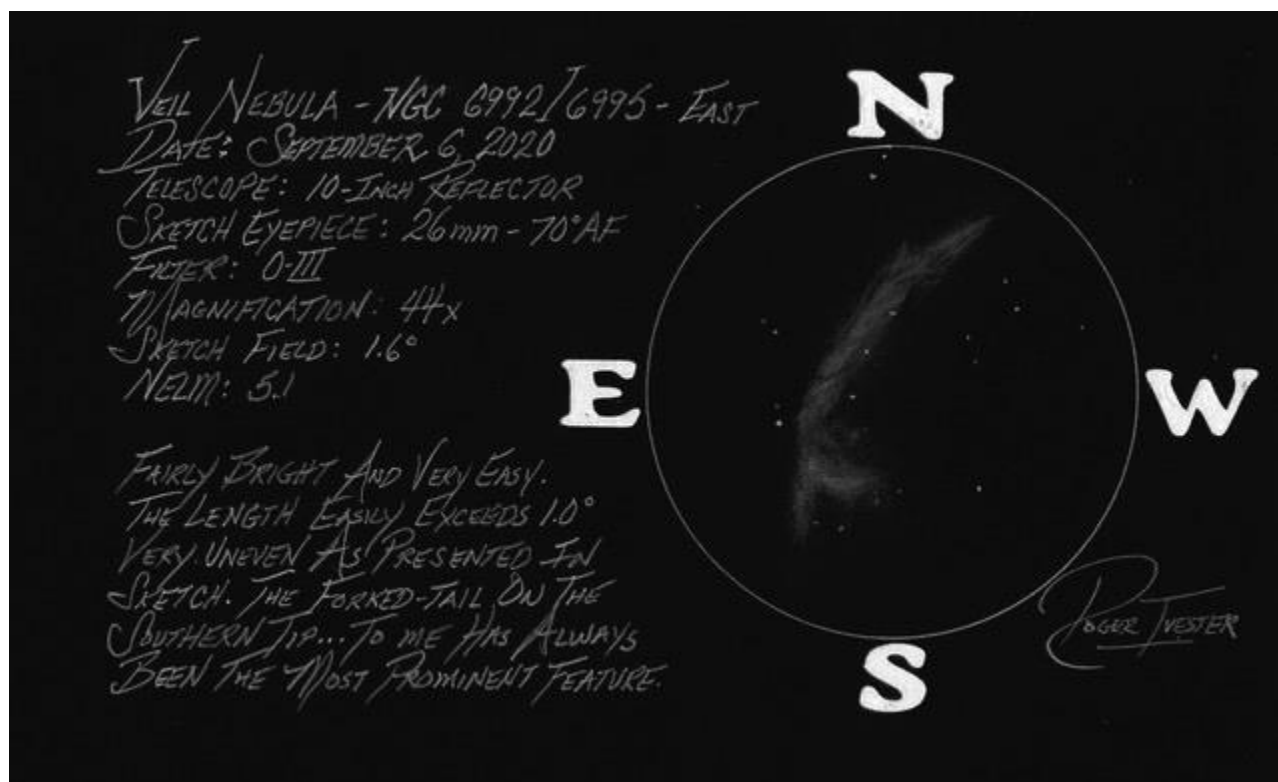 VEIL NEBULA - NGC 6992/6995 - EAST
DATE: SEPTEMBER 6, 2020
TELESCOPE: 10-INCH REFLECTOR
SKETCH EYEPIECE: 26mm - 70° AF
FILTER: O-III
MAGNIFICATION: 44x
SKETCH FIELD: 1.6°
NELM: 5.1
FAIRLY BRIGHT AND VERY EASY.
THE LENGTH EASILY EXCEEDS 1.0°
VERY UNEVEN AS PRESENTED IN
SKETCH. THE FORKED-TAIL ON THE
SOUTHERN TIP... TO ME HAS ALWAYS
BEEN THE MOST PROMINENT FEATURE.
N
E
W
S
ROGER IVESTER